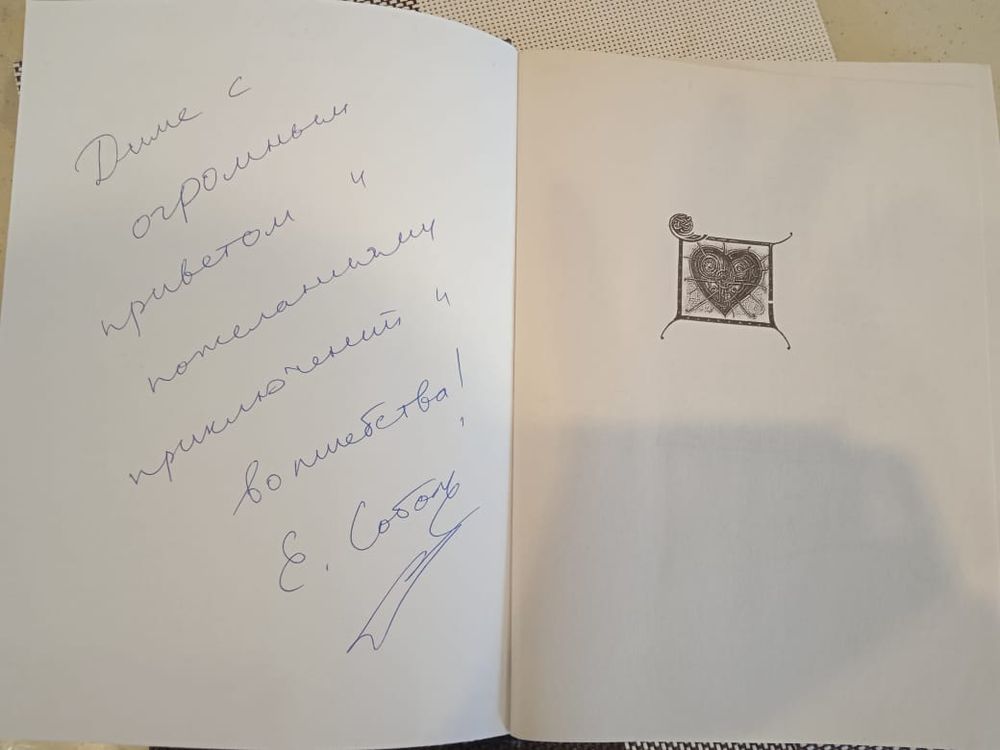 Диме с
огромным
приветом и
пожеланиями
приключений и
волшебства!
Е. Соболь